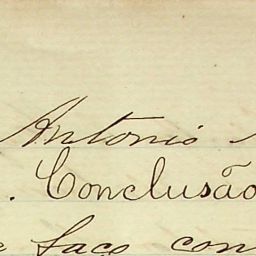 Antonio
. Conclusão
faço con